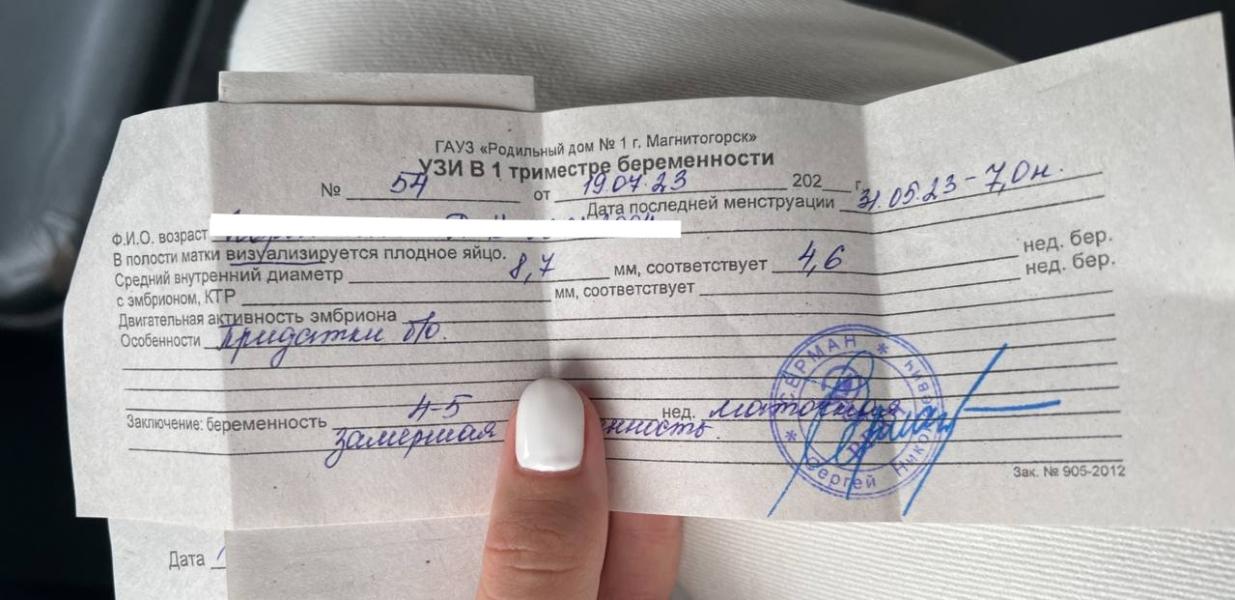 ГАУЗ «Родильный дом № 1 г. Магнитогорск»
УЗИ В 1 триместре беременности
№ 54 от 19.07.23 202 г.
Дата последней менструации 31.05.23 - 7,0 н.
Ф.И.О. возраст
В полости матки визуализируется плодное яйцо.
Средний внутренний диаметр 8,7 мм, соответствует 4,6 нед. бер.
с эмбрионом, КТР мм, соответствует нед. бер.
Двигательная активность эмбриона
Особенности Придатки б/о.
Заключение: беременность 4-5 нед. маточная
Замершая нность
БЕРМАН
Сергей
Зак. № 905-2012
Дата